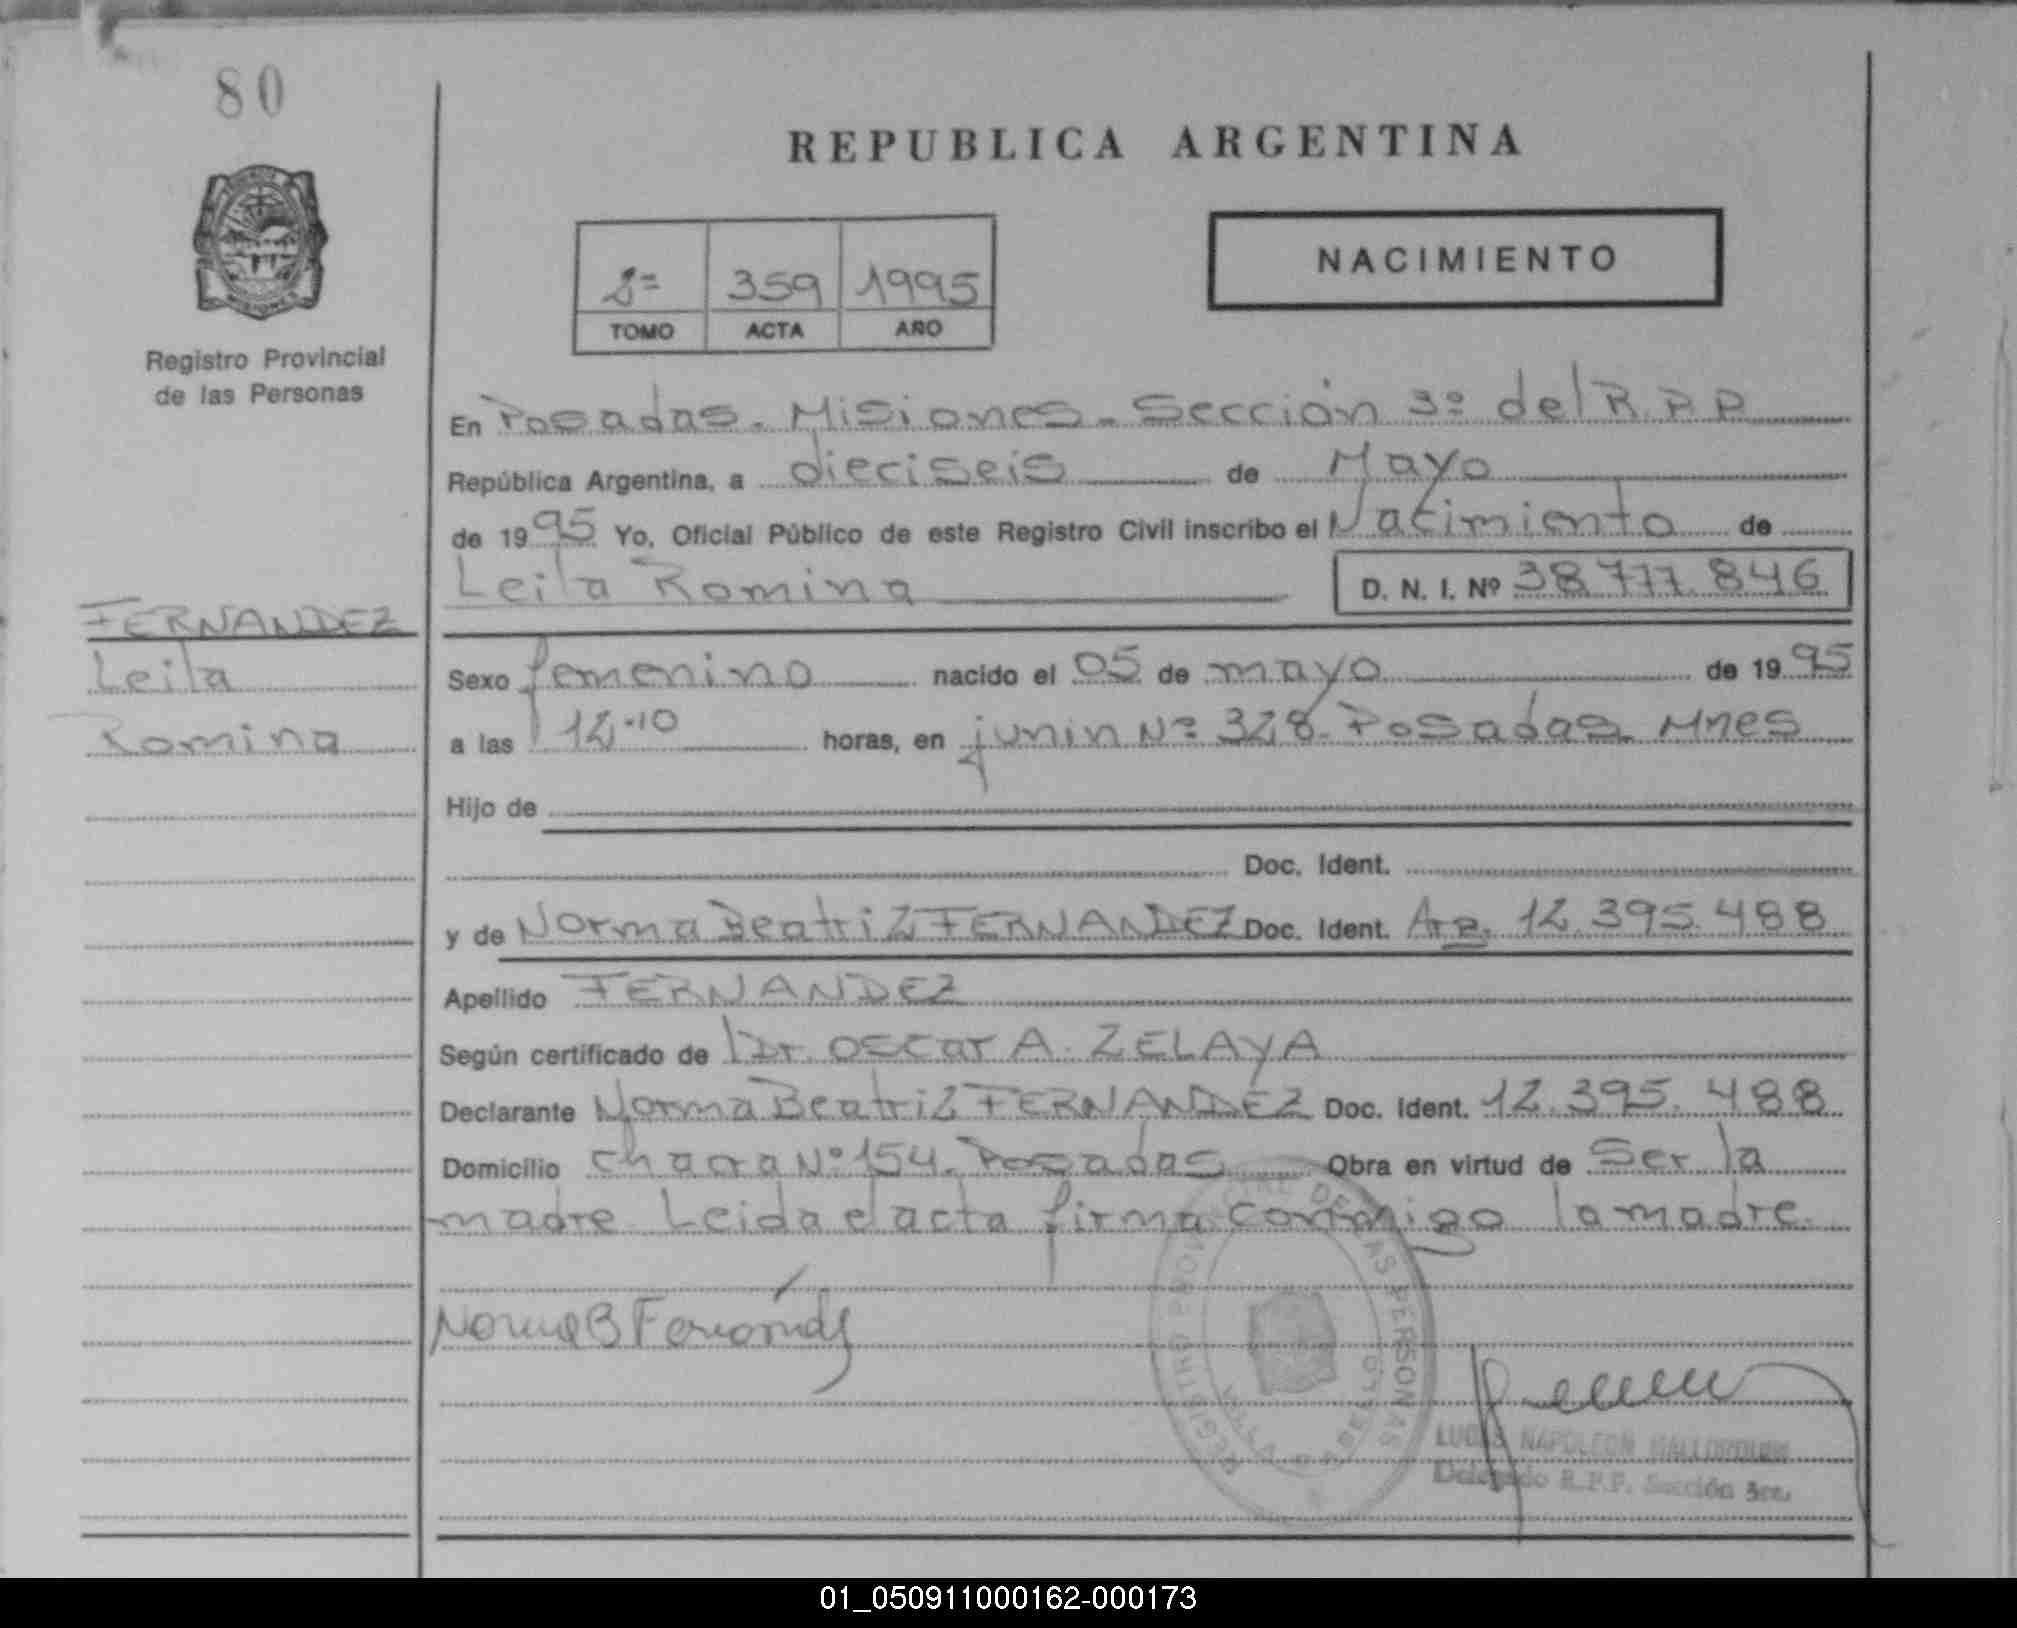 80
REPUBLICA ARGENTINA
2=
359
1995
TOMO
ACTA
AÑO
NACIMIENTO
Registro Provincial
de las Personas
En Posadas - Misiones - Sección 3º del R.P.P
República Argentina, a dieciseis de Mayo
de 1995 Yo, Oficial Público de este Registro Civil inscribo el Nacimiento de
Leila Romina D. N. I. Nº 38.777.846
FERNANDEZ
Leila
Romina
Sexo femenino nacido el 05 de mayo de 1995
a las 12.10 horas, en junin Nº 328. Posadas. Mnes
Hijo de
Doc. Ident.
y de Norma Beatriz FERNANDEZ Doc. Ident. Arg. 12.395.488
Apellido FERNANDEZ
Según certificado de Dr. Oscar A. ZELAYA
Declarante Norma Beatriz FERNANDEZ Doc. Ident. 12.395.488
Domicilio chacra Nº 154. Posadas Obra en virtud de Ser la
madre. Leida el acta firma conmigo la madre.
Norma B Fernández
REGISTRO PROV DE LAS PERSONAS
LUCAS NAPOLEON
Delegado R.P.P. Sección 3ra.
01_050911000162-000173